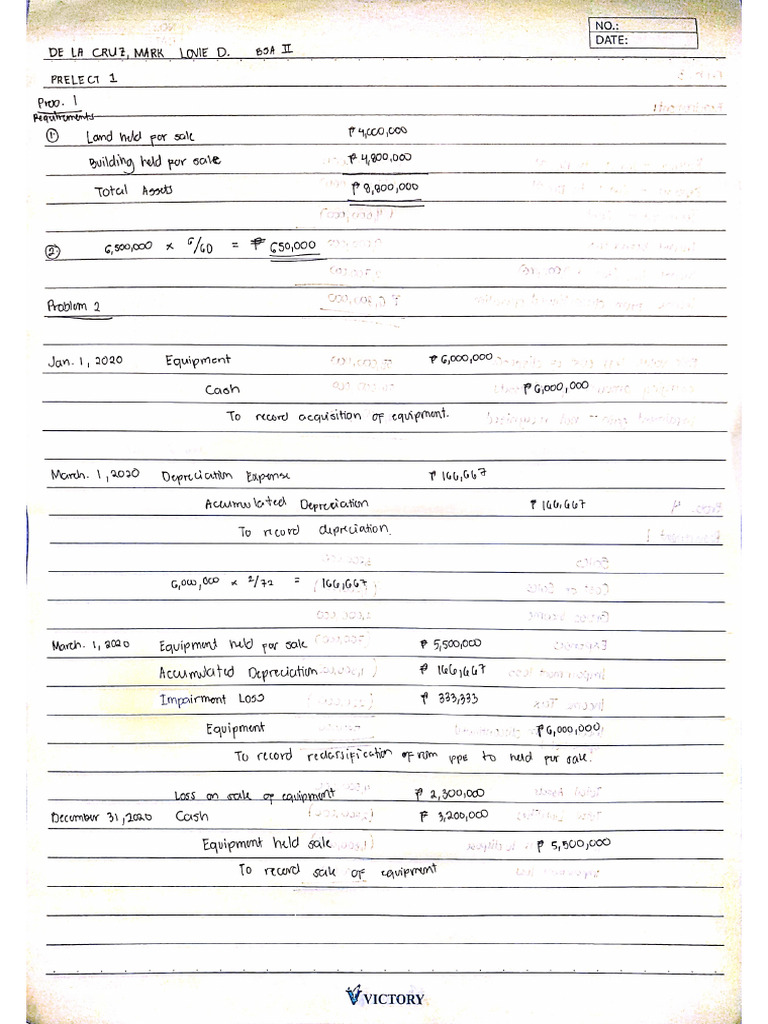 NO.:
DATE:
DE LA CRUZ, MARK LOVIE D. BSA II
PRELECT 1
Prob. 1
Requirements
1. Land held for sale ₱ 4,000,000
Building held for sale ₱ 4,800,000
Total Assets ₱ 8,800,000
2. 6,500,000 × 6/60 = ₱ 650,000
Problem 2
Jan. 1, 2020 Equipment ₱ 6,000,000
Cash ₱ 6,000,000
To record acquisition of equipment.
March. 1, 2020 Depreciation Expense ₱ 166,667
Accumulated Depreciation ₱ 166,667
To record depreciation.
6,000,000 × 2/72 = 166,667
March. 1, 2020 Equipment held for sale ₱ 5,500,000
Accumulated Depreciation ₱ 166,667
Impairment Loss ₱ 333,333
Equipment ₱ 6,000,000
To record reclassification of PPE to held for sale.
Loss on sale of equipment ₱ 2,300,000
December 31, 2020 Cash ₱ 3,200,000
Equipment held sale ₱ 5,500,000
To record sale of equipment
VICTORY